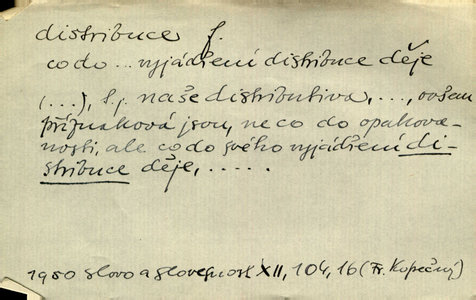 distribuce f.
co do .. vyjádření distribuce děje
(...), t.j. naše distributiva, ..., ovšem
příznaková jsou, ne co do opakova-
nosti, ale co do svého vyjádření di-
stribuce děje, ......
1950 Slovo a slovesnost XII, 104, 16 (Fr. Kopečný)